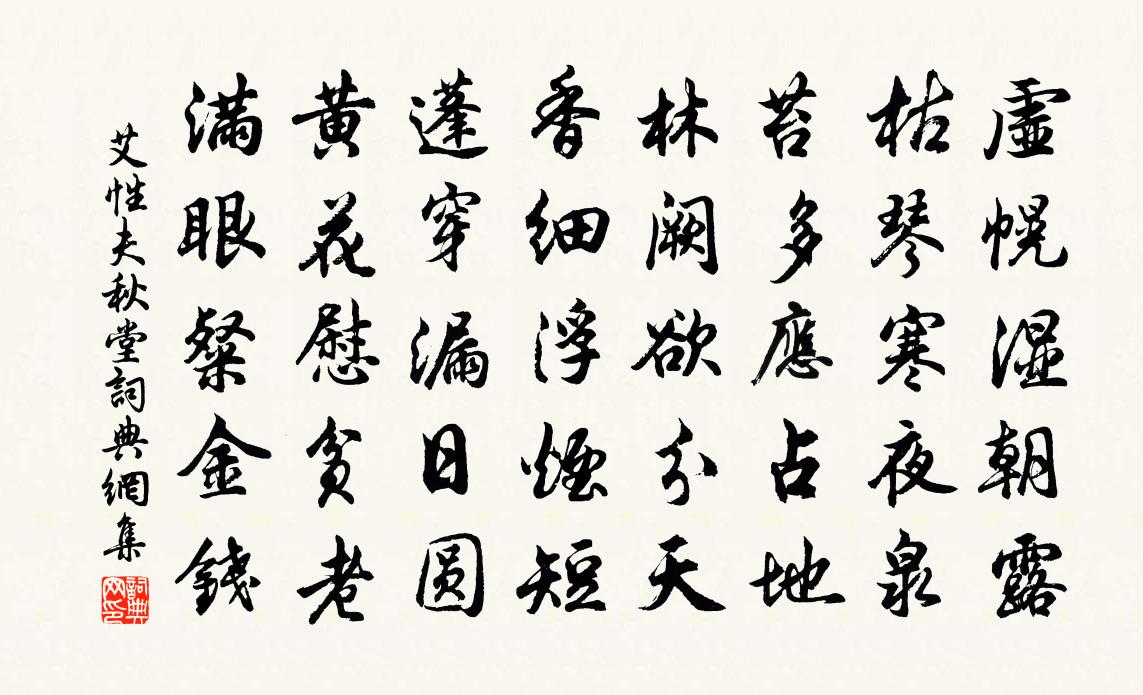 虛幌濕朝露
枯琴寒夜泉
苔多應占地
林闕欲分天
香細浮煙短
蓬穿漏日圓
黃花慰貧老
滿眼粲金錢
艾性夫秋堂詞典網集
詞典網印